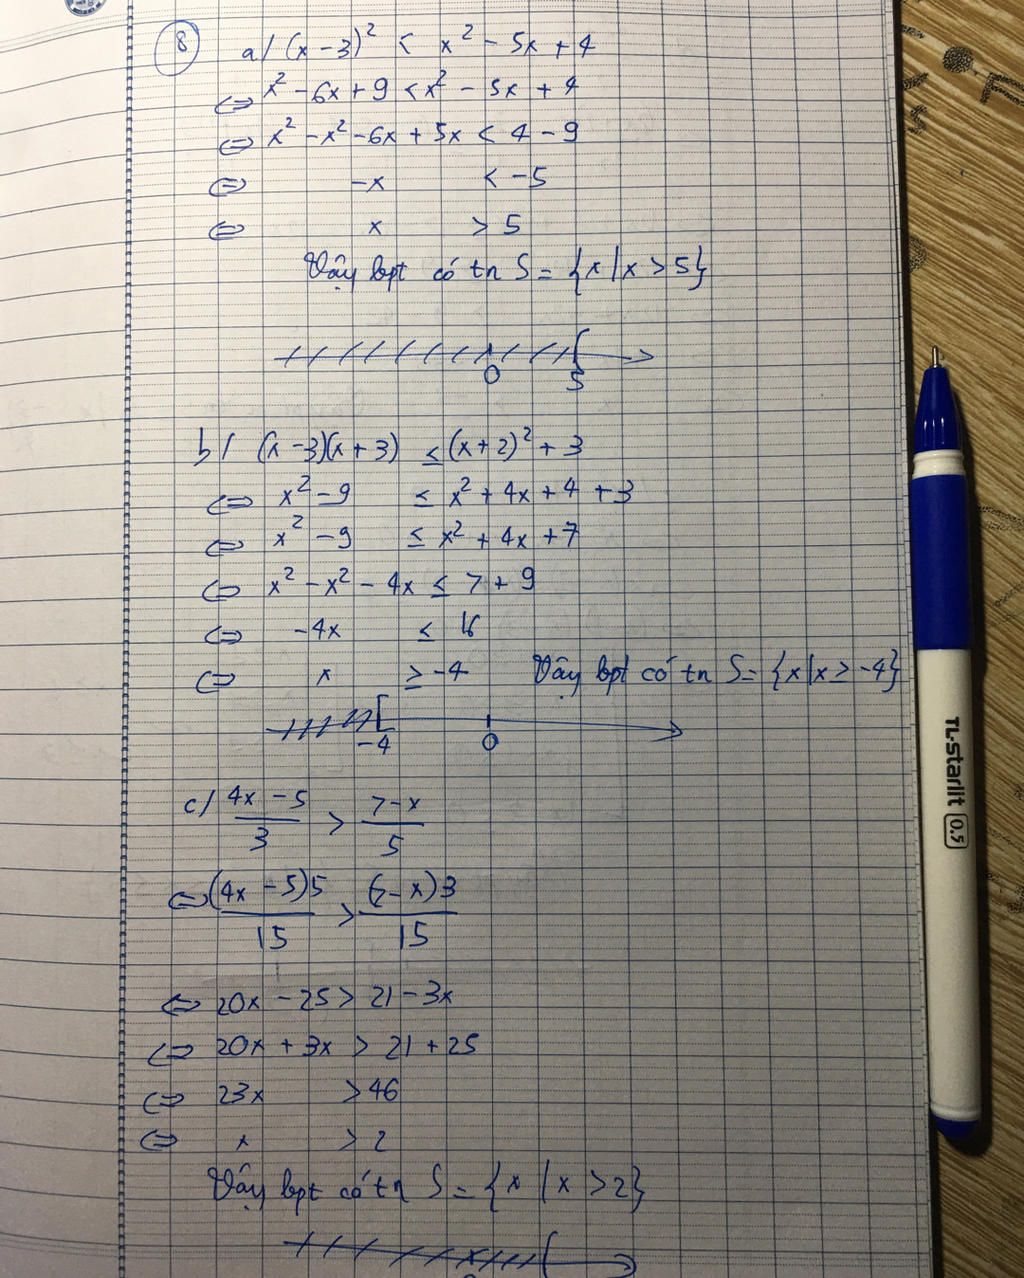 8 a/ (x - 3)² < x² - 5x + 4
⇔ x² - 6x + 9 < x² - 5x + 4
⇔ x² - x² - 6x + 5x < 4 - 9
⇔ -x < -5
⇔ x > 5
Vậy bpt có tn S = {x | x > 5}
0 5
b/ (x - 3)(x + 3) ≤ (x + 2)² + 3
⇔ x² - 9 ≤ x² + 4x + 4 + 3
⇔ x² - 9 ≤ x² + 4x + 7
⇔ x² - x² - 4x ≤ 7 + 9
⇔ -4x ≤ 16
⇔ x ≥ -4 Vậy bpt có tn S = {x | x ≥ -4}
-4 0
c/ (4x - 5)/3 > (7 - x)/5
⇔ (4x - 5)5/15 > (7 - x)3/15
⇔ 20x - 25 > 21 - 3x
⇔ 20x + 3x > 21 + 25
⇔ 23x > 46
⇔ x > 2
Vậy bpt có tn S = {x | x > 2}
TL-Starlit 0.5